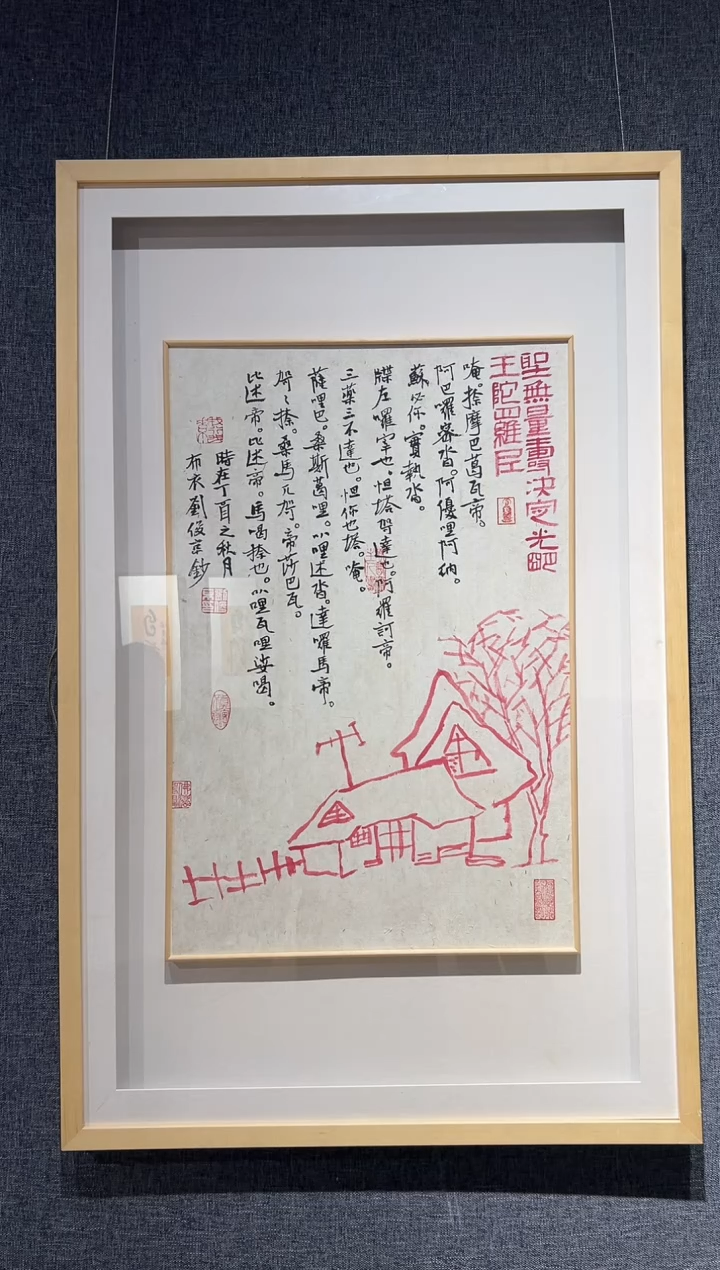 聖無量壽決定光明
王陀羅尼
唵。捺摩巴葛瓦帝。
阿巴囉密沓。阿優哩阿納。
蘇必你。寶執沓。
牒左囉宰也。怛塔哿達也。阿羅訶帝。
三藥三不達也。怛你也塔。唵。
薩哩巴。桑斯葛哩。叭哩述沓。達囉馬帝。
哿哿捺。桑馬兀哿。帝莎巴瓦。
比述帝。馬喝捺也。叭哩瓦哩娑喝。
時在丁酉之秋月
布衣劉俊京鈔